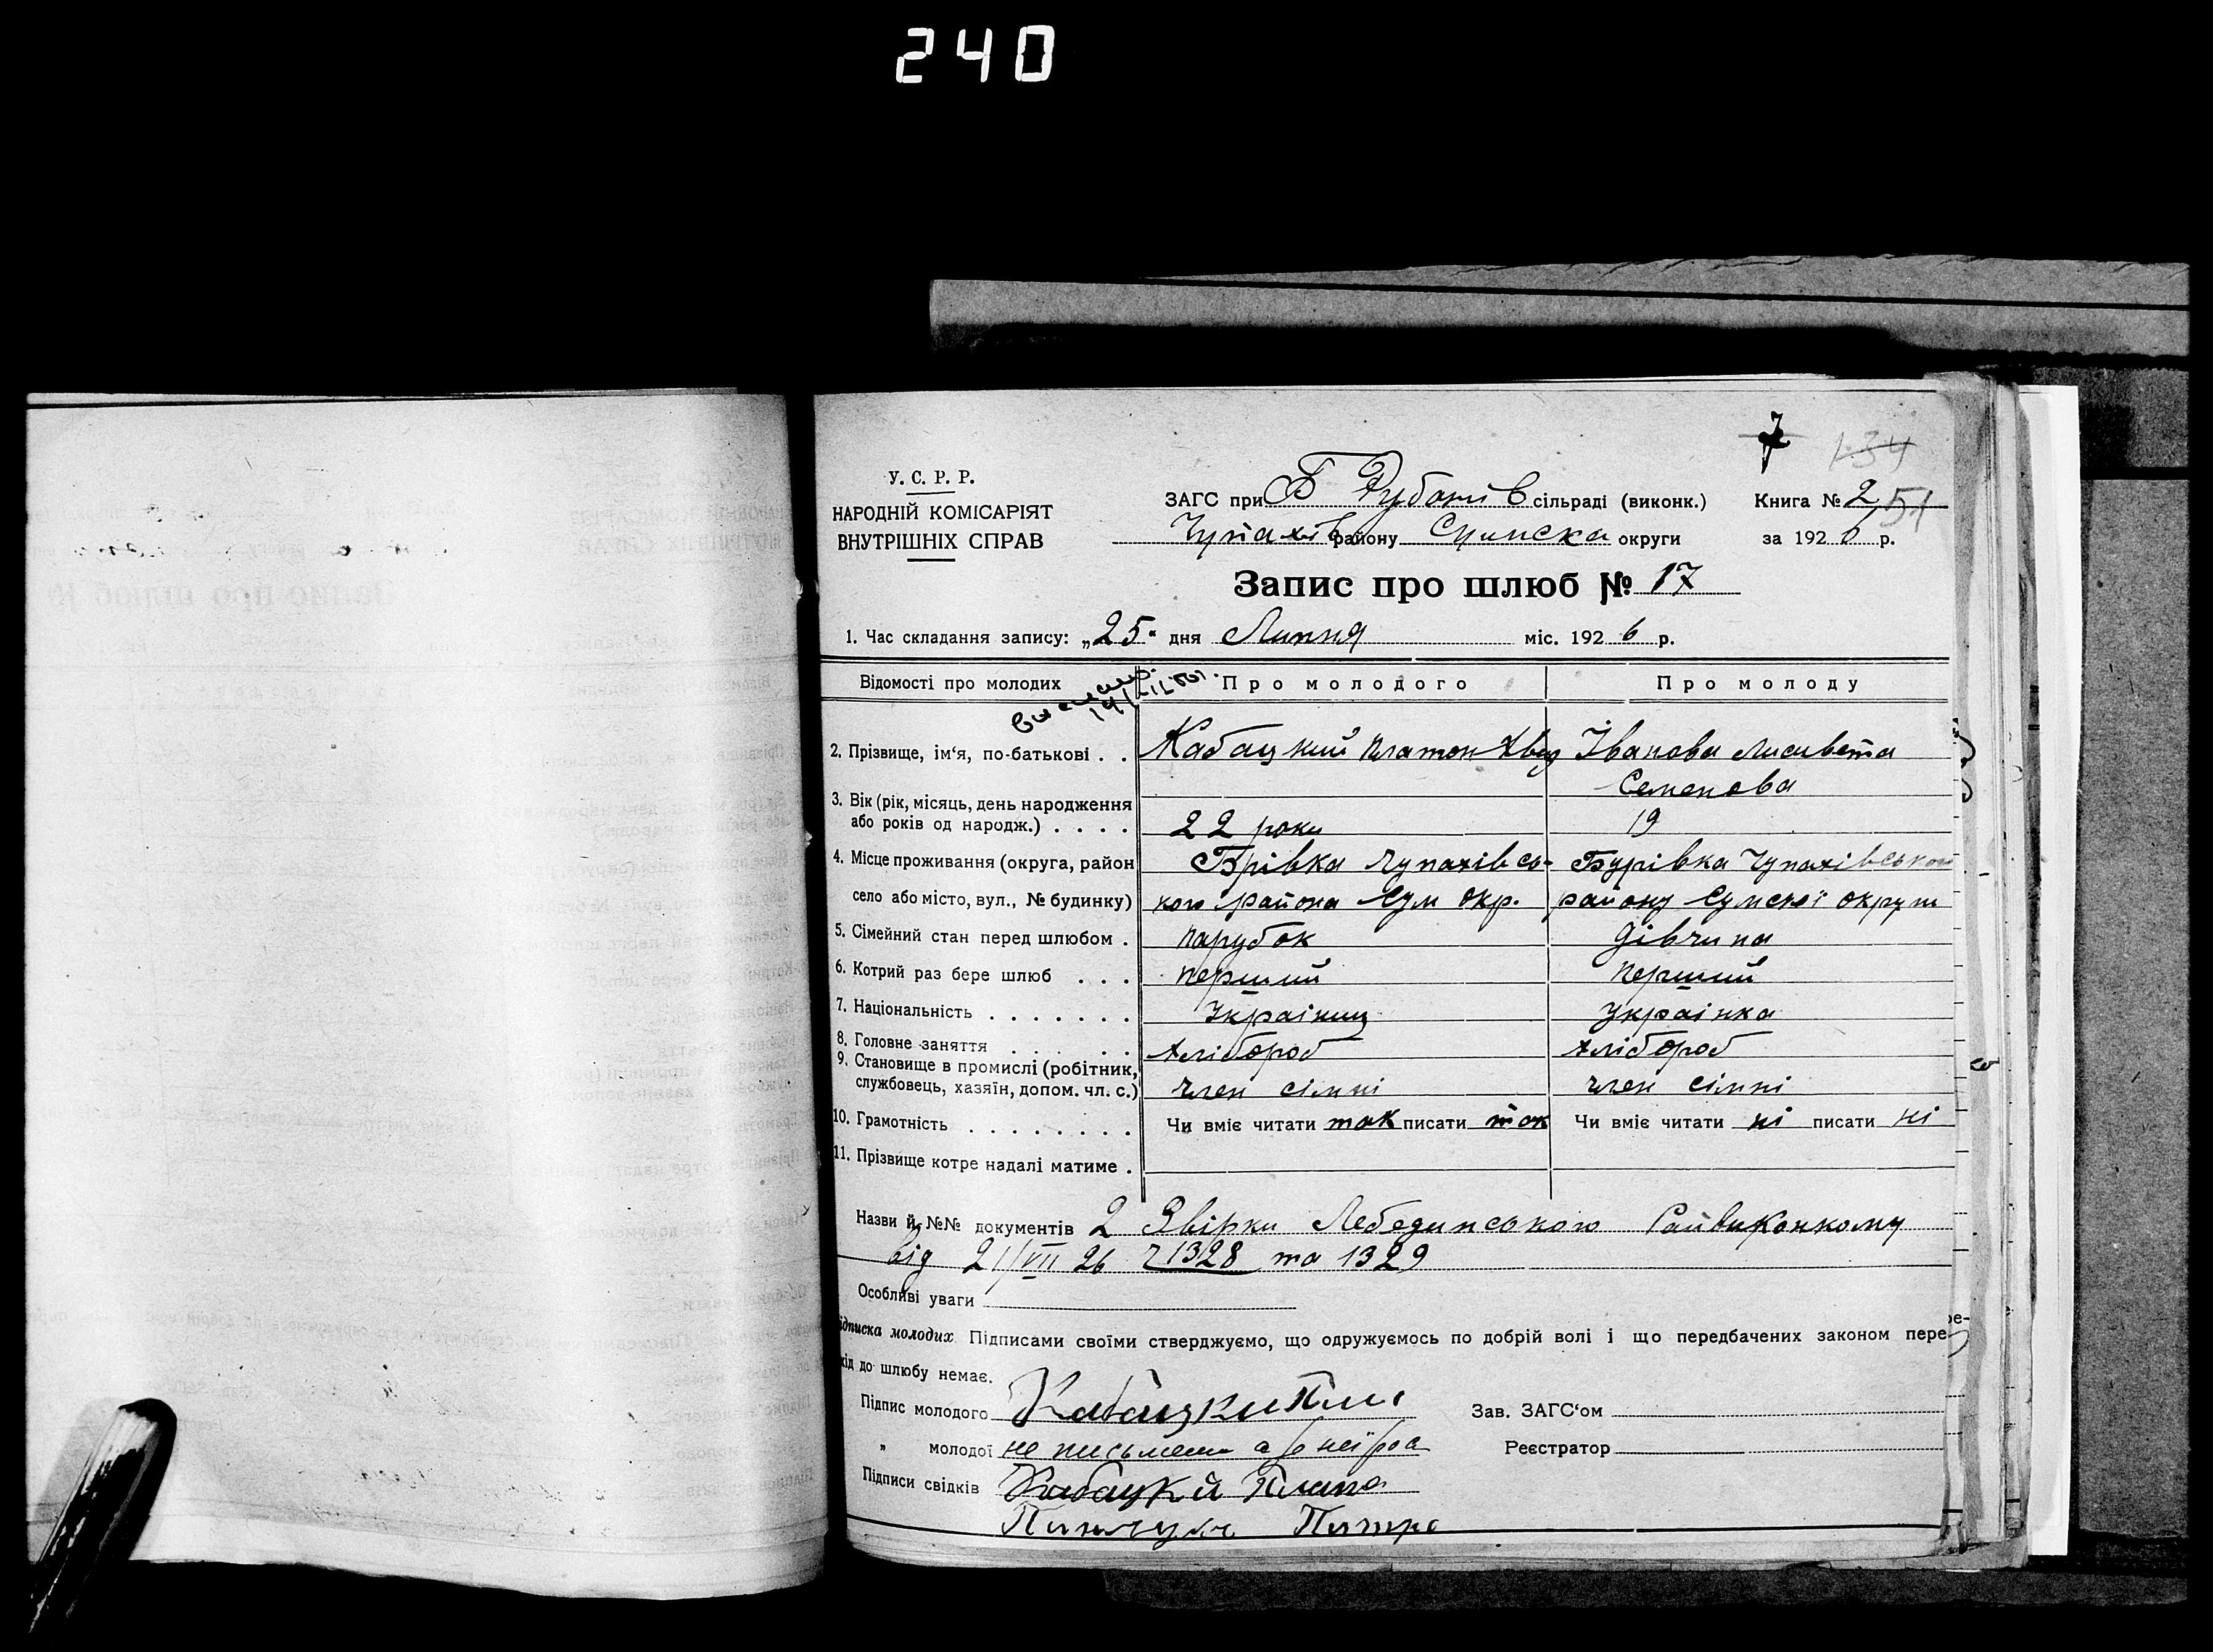 240
7
134
51
У. С. Р. Р.
НАРОДНІЙ КОМІСАРІЯТ
ВНУТРІШНІХ СПРАВ
ЗАГС при Б Рубанів сільраді (виконк.) Книга № 2
Чупахів району Сумска округи за 192 6 р.
Запис про шлюб № 17
1. Час складання запису: „25" дня Липня міс. 192 6 р.
Відомості про молодих Про молодого Про молоду
2. Прізвище, ім'я, по-батькові . . Кабацкий Платон Іванова Лисивета
Семенова
3. Вік (рік, місяць, день народження
або років од народж.) . . . . 22 роки 19
4. Місце проживання (округа, район Брівка Чупахівсь- Бурівка Чупахівського
село або місто, вул., № будинку) кого района Сум Окр. району Сумскої округи
5. Сімейний стан перед шлюбом . парубок дівчина
6. Котрий раз бере шлюб . . . перший перший
7. Національність . . . . . . . Україниц Українка
8. Головне заняття . . . . . . хлібороб хлібороб
9. Становище в промислі (робітник,
службовець, хазяїн, допом. чл. с.) член сімпі член сімпі
10. Грамотність . . . . . . . . Чи вміє читати так писати так Чи вміє читати ні писати ні
11. Прізвище котре надалі матиме .
Назви й №№ документів 2 Звірки Лебединського Райвиконкому
від 21/VII 26 ч 1328 та 1329
Особливі уваги
ідписка молодих Підписами своїми стверджуємо, що одружуємось по добрій волі і що передбачених законом пере-
кід до шлюбу немає.
Підпис молодого Кабацки Зав. ЗАГС'ом
„ молодої не письмен Реєстратор
Підписи свідків Кабацкй
Петро